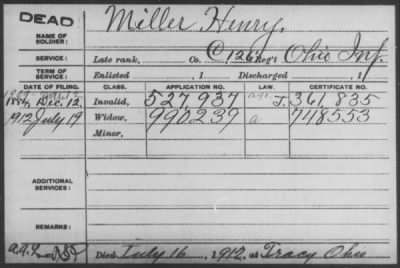 DEAD
NAME OF SOLDIER: Miller Henry.
SERVICE: Late rank, Co. C 126 Reg't Ohio Inf.
TERM OF SERVICE: Enlisted , 1 Discharged , 1
DATE OF FILING. CLASS. APPLICATION NO. LAW. CERTIFICATE NO.
1884, Dec. 12. Invalid, 527,937 J. 361,835
1912 July 19 Widow, 990239 a 748553
Minor,
ADDITIONAL SERVICES:
REMARKS:
Died July 16, 1912, at Tracy Ohio